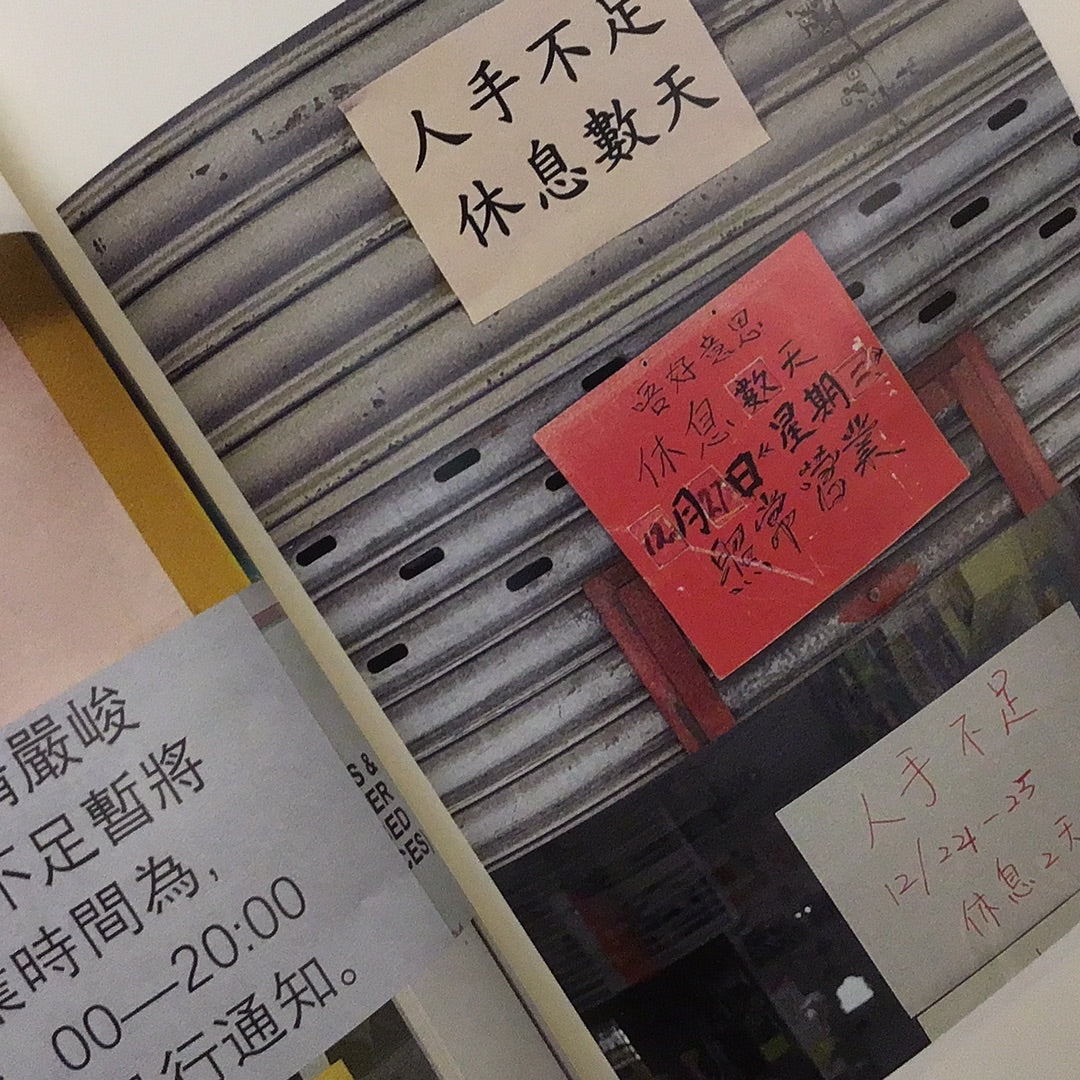 嚴峻
不足暫將
時間為，
00—20:00
行通知。
S &
ER
IED
CES
人手不足
休息數天
唔好意思
休息數天
12月27日“星期三”
照常營業
人手不足
12/24-25
休息2天